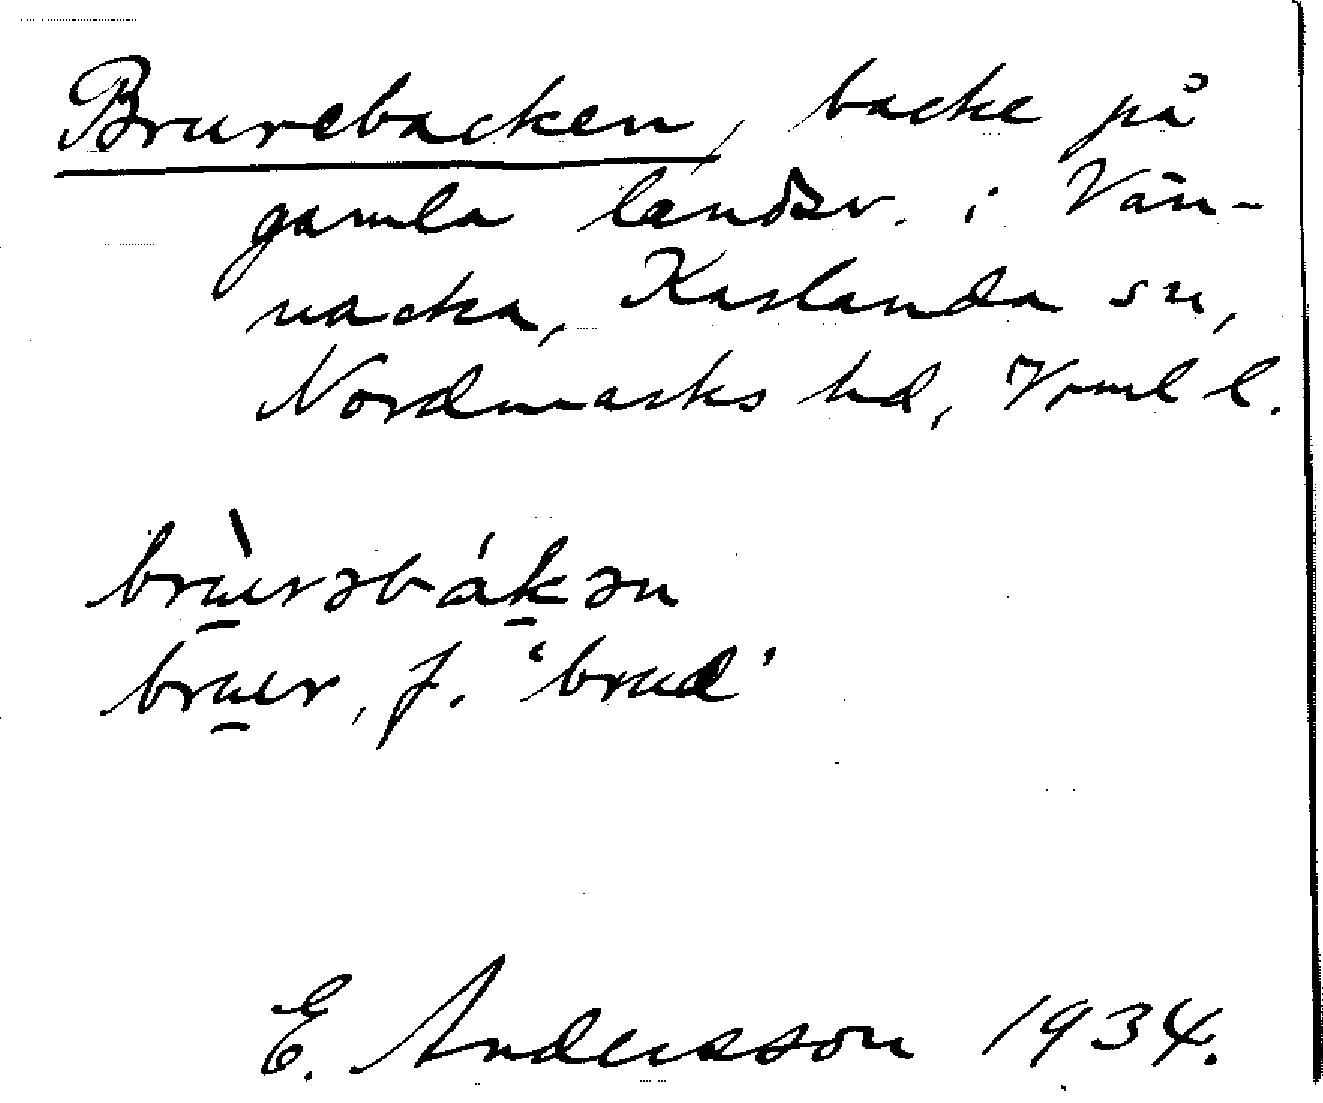 Brurebacken, backe på
gamla landsv. i Vän-
nacka, Karlanda sn,
Nordmarks hd, Vrml l.
brùu̠rəbák̠ən
bru̠ur, f. 'brud'
E. Andersson 1934.